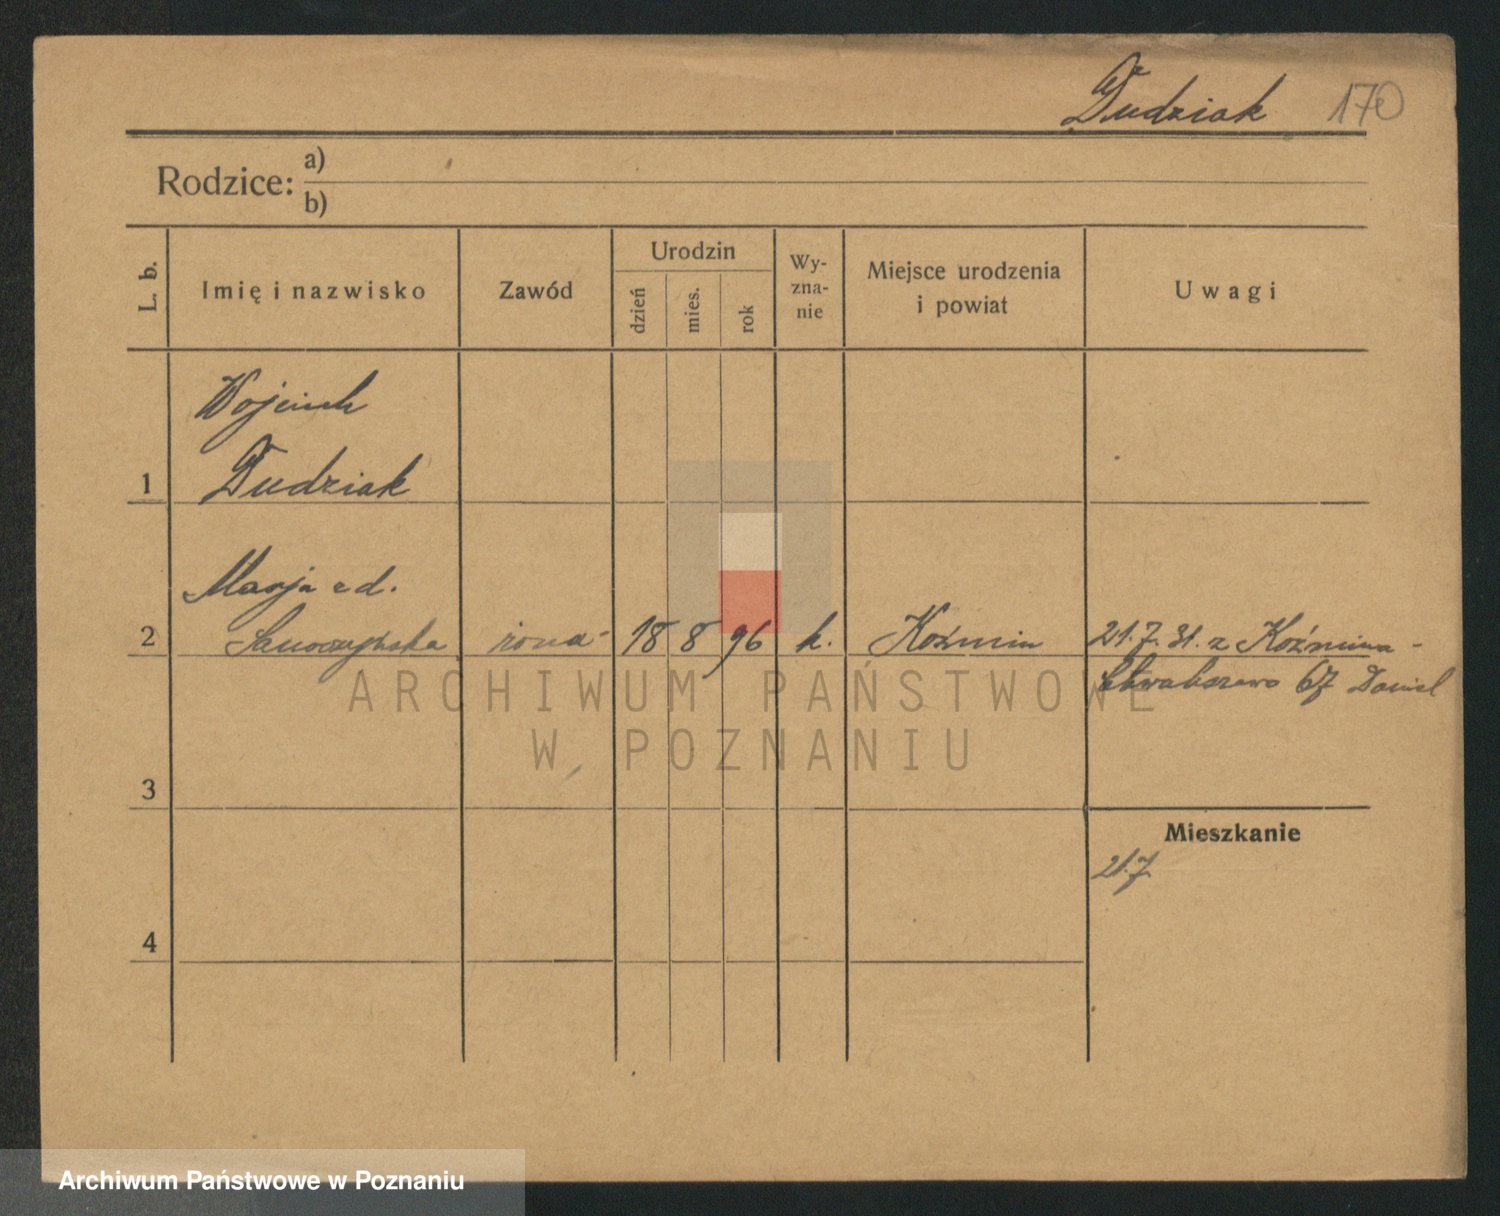 Dudziak 170
Rodzice: a)
b)
L. b.
Imię i nazwisko
Zawód
Urodzin
dzień
mies.
rok
Wy-
zna-
nie
Miejsce urodzenia
i powiat
Uwagi
Wojciech
1 Dudziak
Marja z d.
2 żona 18 8 96 k. Koźmin 21.7.31. z Koźmina -
Chwaliszewo 67
ARCHIWUM PAŃSTWOWE
W POZNANIU
3
Mieszkanie
21.7
4
Archiwum Państwowe w Poznaniu